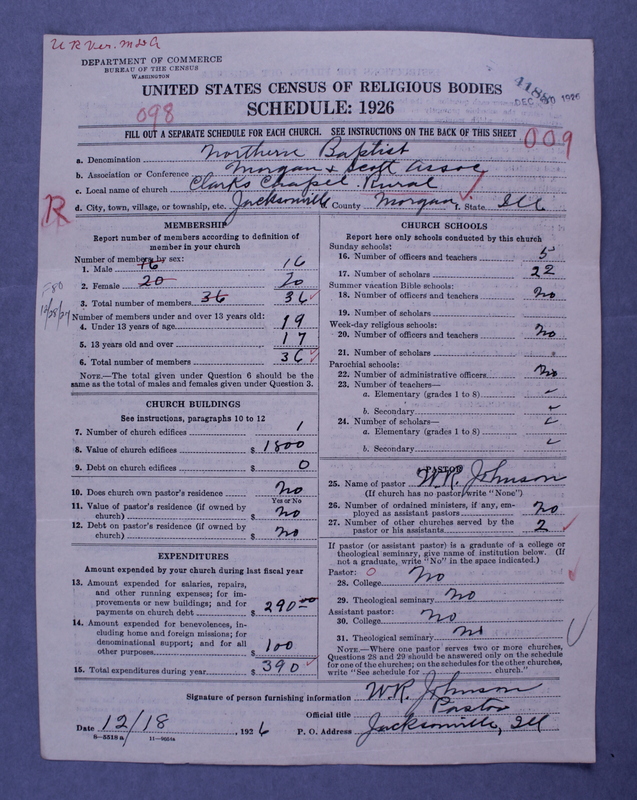 U R Ver. M & A
DEPARTMENT OF COMMERCE
BUREAU OF THE CENSUS
WASHINGTON
UNITED STATES CENSUS OF RELIGIOUS BODIES
SCHEDULE: 1926
4188
DEC 1926
098
009
FILL OUT A SEPARATE SCHEDULE FOR EACH CHURCH. SEE INSTRUCTIONS ON THE BACK OF THIS SHEET
a. Denomination Northern Baptist
b. Association or Conference Morgan & Scott Assoc
c. Local name of church Clarks Chapel. Rural
R
d. City, town, village, or township, etc. Jacksonville e. County Morgan f. State Ill
MEMBERSHIP
Report number of members according to definition of
member in your church
Number of members by sex:
1. Male 16 16
2. Female 20 20
3. Total number of members 36 36
12/28/27
Number of members under and over 13 years old:
4. Under 13 years of age 19
5. 13 years old and over 17
6. Total number of members 36
NOTE.—The total given under Question 6 should be the
same as the total of males and females given under Question 3.
CHURCH BUILDINGS
See instructions, paragraphs 10 to 12
7. Number of church edifices 1
8. Value of church edifices $ 1800
9. Debt on church edifices $ 0
10. Does church own pastor's residence No
Yes or No
11. Value of pastor's residence (if owned by
church) $ No
12. Debt on pastor's residence (if owned by
church) $ No
EXPENDITURES
Amount expended by your church during last fiscal year
13. Amount expended for salaries, repairs,
and other running expenses; for im-
provements or new buildings; and for
payments on church debt $ 290.00
14. Amount expended for benevolences, in-
cluding home and foreign missions; for
denominational support; and for all
other purposes $ 100
15. Total expenditures during year $ 390
CHURCH SCHOOLS
Report here only schools conducted by this church
Sunday schools:
16. Number of officers and teachers 5
17. Number of scholars 22
Summer vacation Bible schools:
18. Number of officers and teachers No
19. Number of scholars
Week-day religious schools:
20. Number of officers and teachers No
21. Number of scholars
Parochial schools:
22. Number of administrative officers No
23. Number of teachers—
a. Elementary (grades 1 to 8)
b. Secondary
24. Number of scholars—
a. Elementary (grades 1 to 8)
b. Secondary
PASTOR
25. Name of pastor W.R. Johnson
(If church has no pastor, write "None")
26. Number of ordained ministers, if any, em-
ployed as assistant pastors No
27. Number of other churches served by the
pastor or his assistants 2
If pastor (or assistant pastor) is a graduate of a college or
theological seminary, give name of institution below. (If
not a graduate, write "No" in the space indicated.)
Pastor: 0
28. College No
29. Theological seminary No
Assistant pastor:
30. College No
31. Theological seminary No
NOTE.—Where one pastor serves two or more churches,
Questions 28 and 29 should be answered only on the schedule
for one of the churches; on the schedules for the other churches,
write "See schedule for church."
Signature of person furnishing information W.R. Johnson
Official title Pastor
Date 12/18, 1926 P. O. Address Jacksonville, Ill
8-5518a 11-9664a